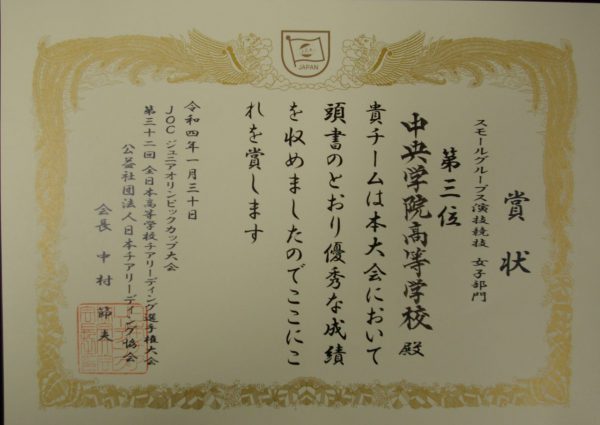 JAPAN
賞状
スモールグループス演技競技 女子部門
第三位
中央学院高等学校 殿
貴チームは本大会において
頭書のとおり優秀な成績
を収めましたのでここにこ
れを賞します
令和四年一月三十日
JOC ジュニアオリンピックカップ大会
第三十二回 全日本高等学校チアリーディング選手権大会
公益社団法人日本チアリーディング協会
会長 中村 節夫